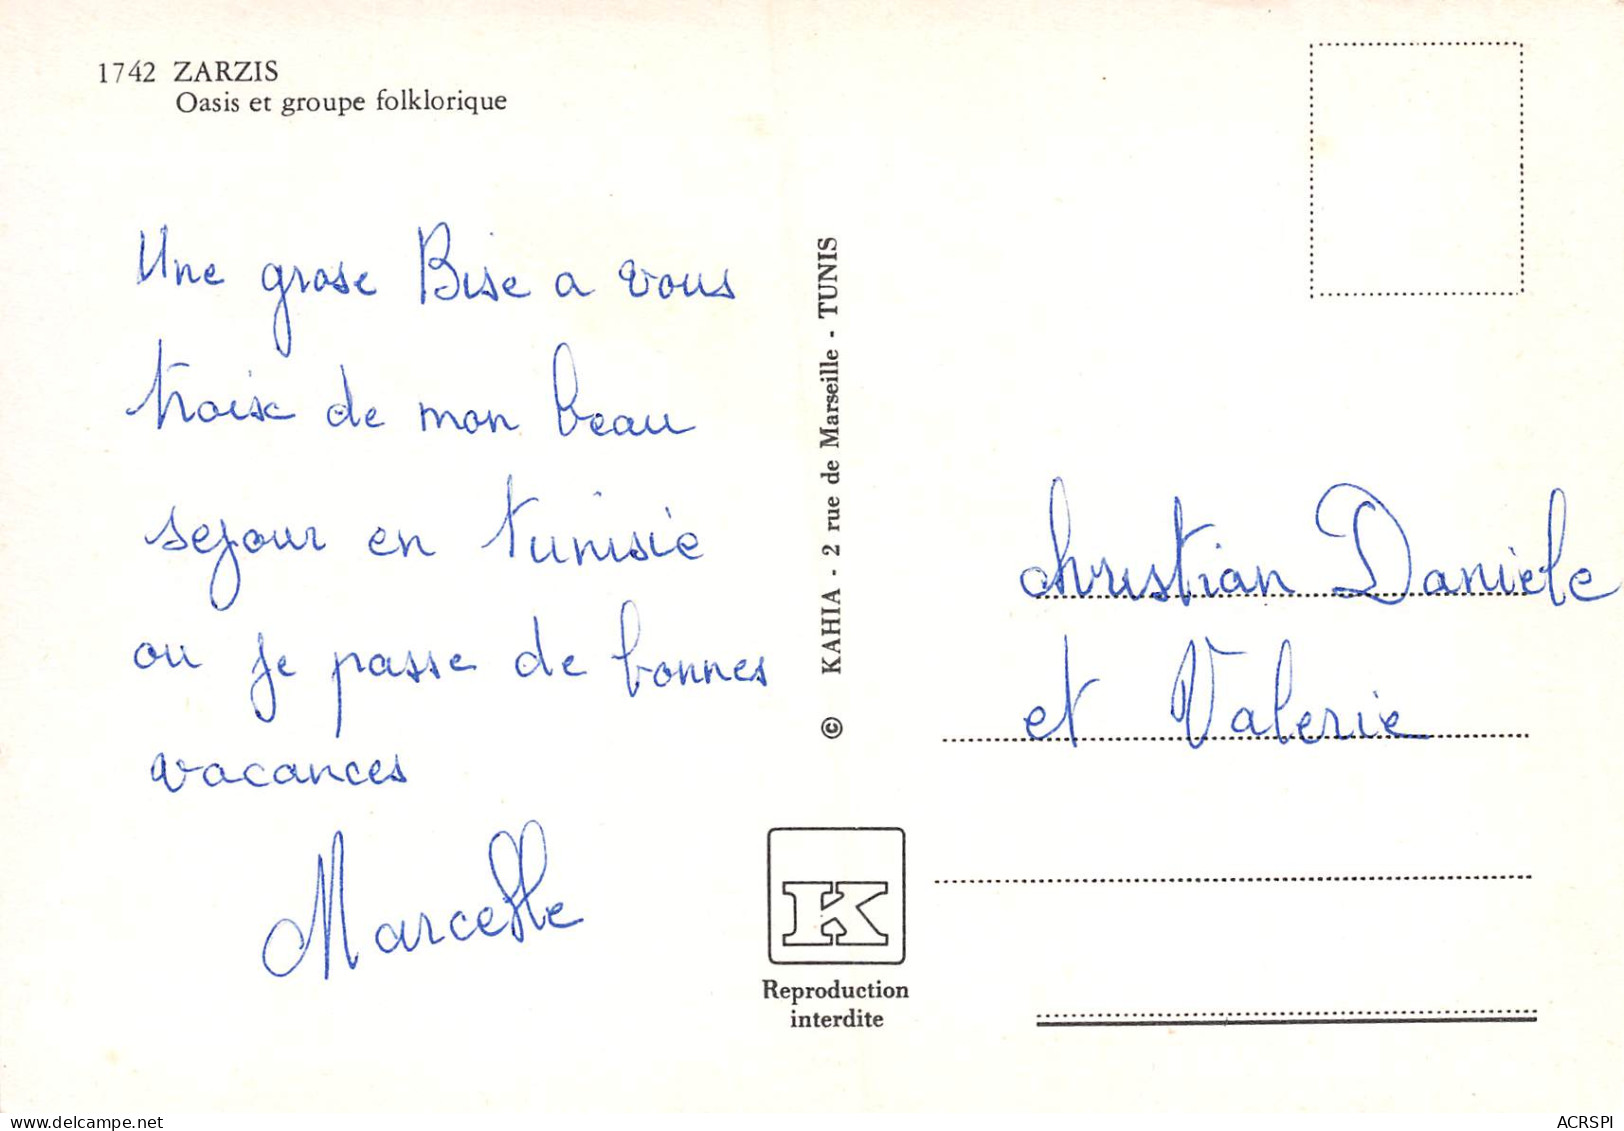 1742 ZARZIS
Oasis et groupe folklorique
Une grose Bise a vous
troise de mon beau
sejour en tunisie
ou je passe de bonnes
vacances
Marcelle
© KAHIA - 2 rue de Marseille - TUNIS
christian Daniele
et Valerie
K
Reproduction
interdite
www.delcampe.net
ACRSPI